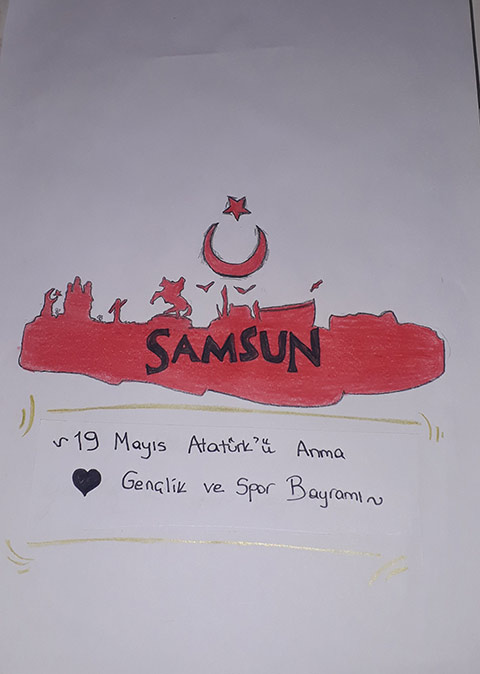 SAMSUN
~ 19 Mayıs Atatürk'ü Anma
Gençlik ve Spor Bayramı ~